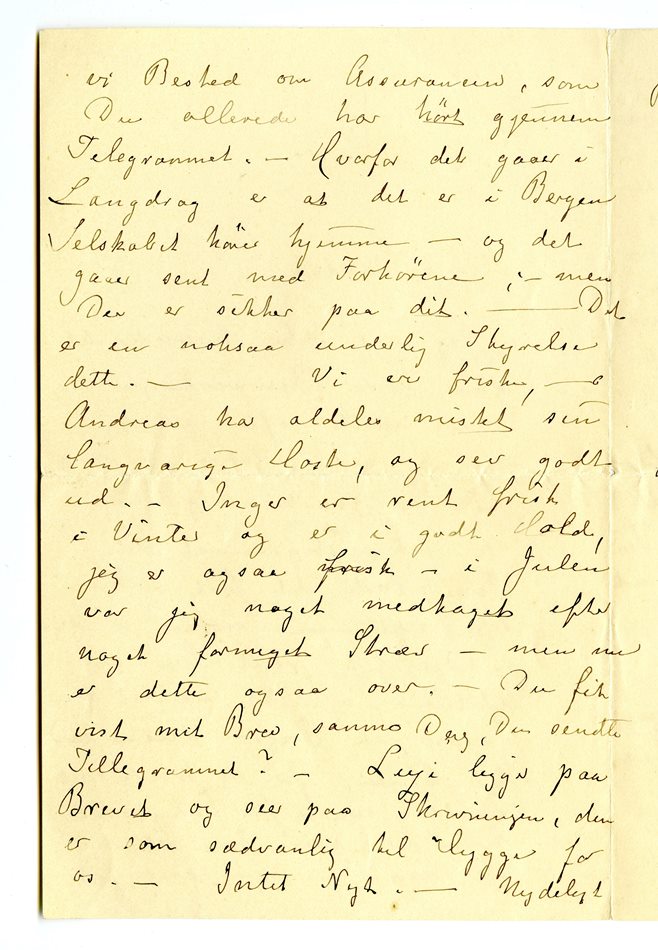 vi Besked om Assurancen, som
Du allerede har hørt gjennem
Telegrammet. - Hvorfor det gaaer i
Langdrag er at det er i Bergen
Selskabet hører hjemme - og det
gaaer sent med Forhørene ; - men
Du er sikker paa dit. - Det
er en noksaa underlig Styrelse
dette. - Vi er friske, -
Andreas har aldeles mistet sin
langvarige Hoste, og ser godt
ud. - Inger er rent frisk
i Vinter og er i godt Hold,
jeg er ogsaa frisk - i Julen
var jeg noget medtaget efter
noget formeget Stræv - men nu
er dette ogsaa over. - Du fik
vist mit Brev, samme Dag, Du sendte
Tellegrammet? - ligge paa
Brevet og seer paa Skrivningen, den
er som sædvanlig til Hygge for
os. - Intet Nyt. - Nydeligt